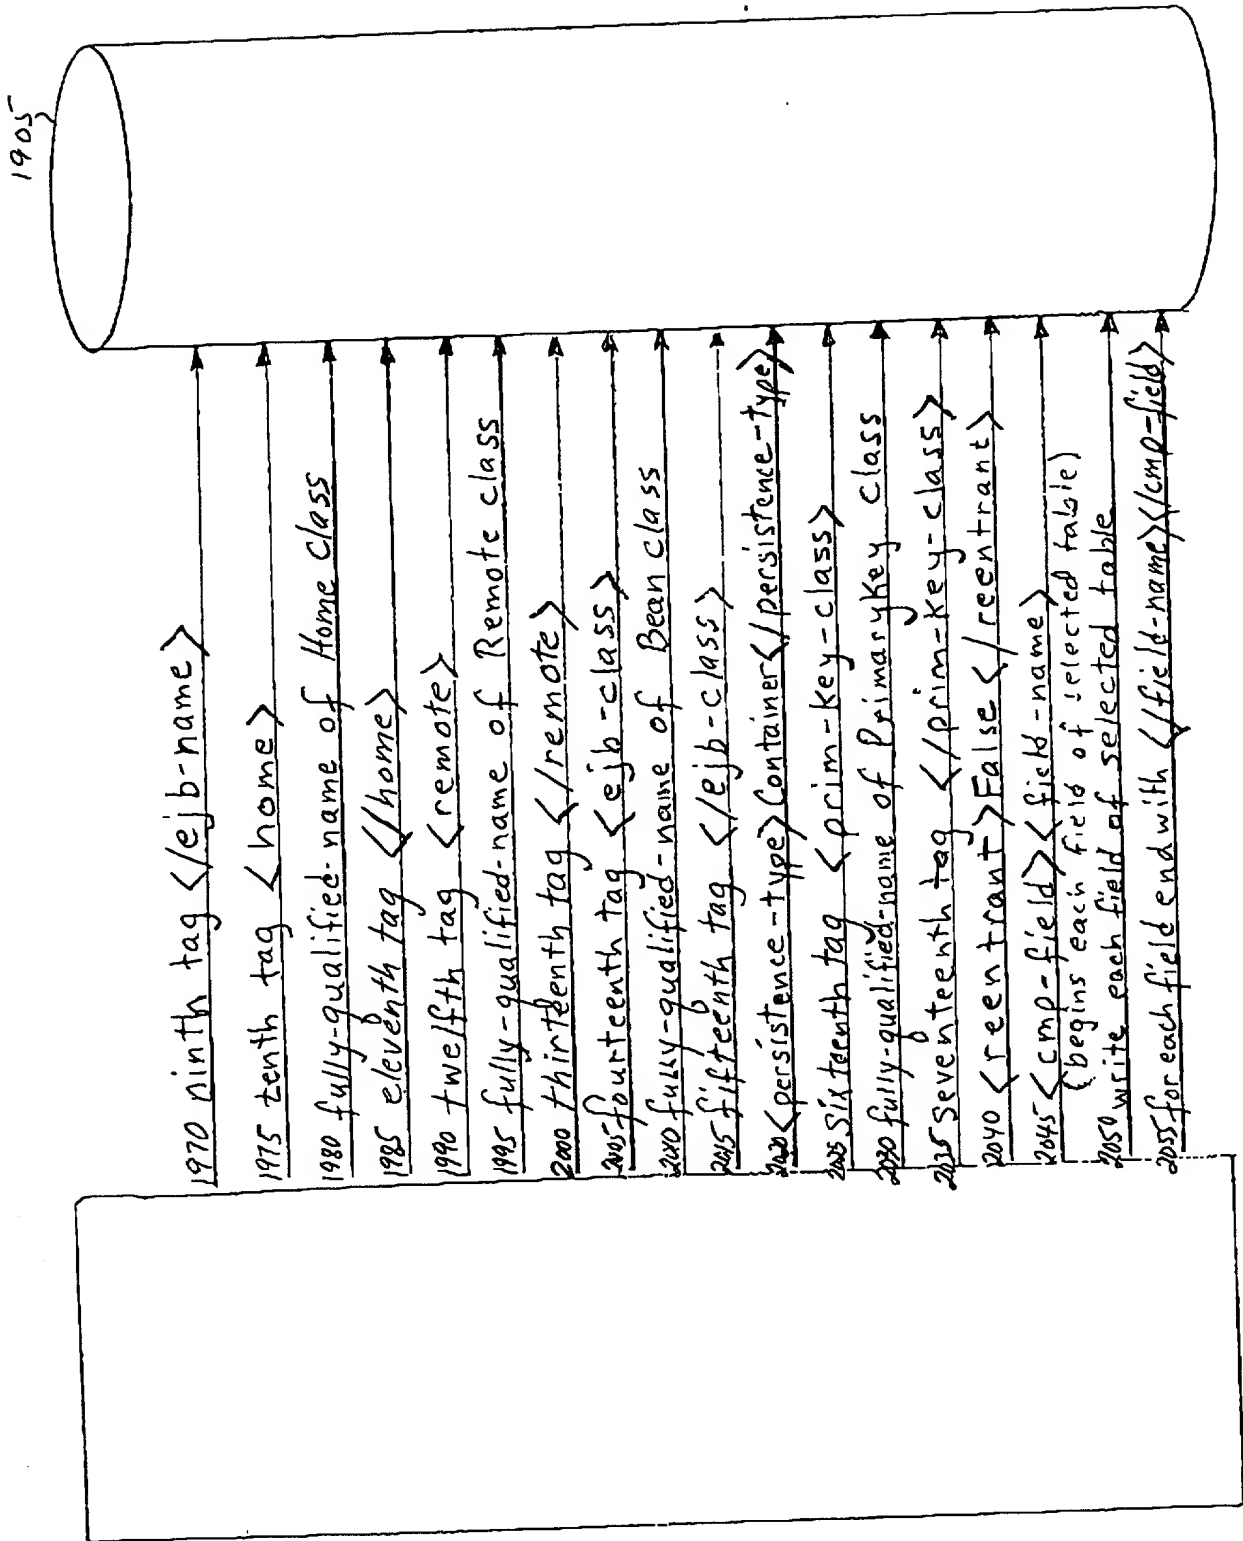 1905
1970 ninth tag </ejb-name>
1975 tenth tag <home>
1980 fully-qualified-name of Home class
1985 eleventh tag </home>
1990 twelfth tag <remote>
1995 fully-qualified-name of Remote class
2000 thirteenth tag </remote>
2005 fourteenth tag <ejb-class>
2010 fully-qualified-name of Bean class
2015 fifteenth tag </ejb-class>
2020 <persistence-type>Container</persistence-type>
2025 Sixteenth tag <prim-key-class>
2030 fully-qualified-name of Primarykey class
2035 Seventeenth tag </prim-key-class>
2040 <reentrant>False</reentrant>
2045 <cmp-field><field-name>
(begins each field of selected table)
2050 write each field of selected table
2055 for each field end with </field-name></cmp-field>